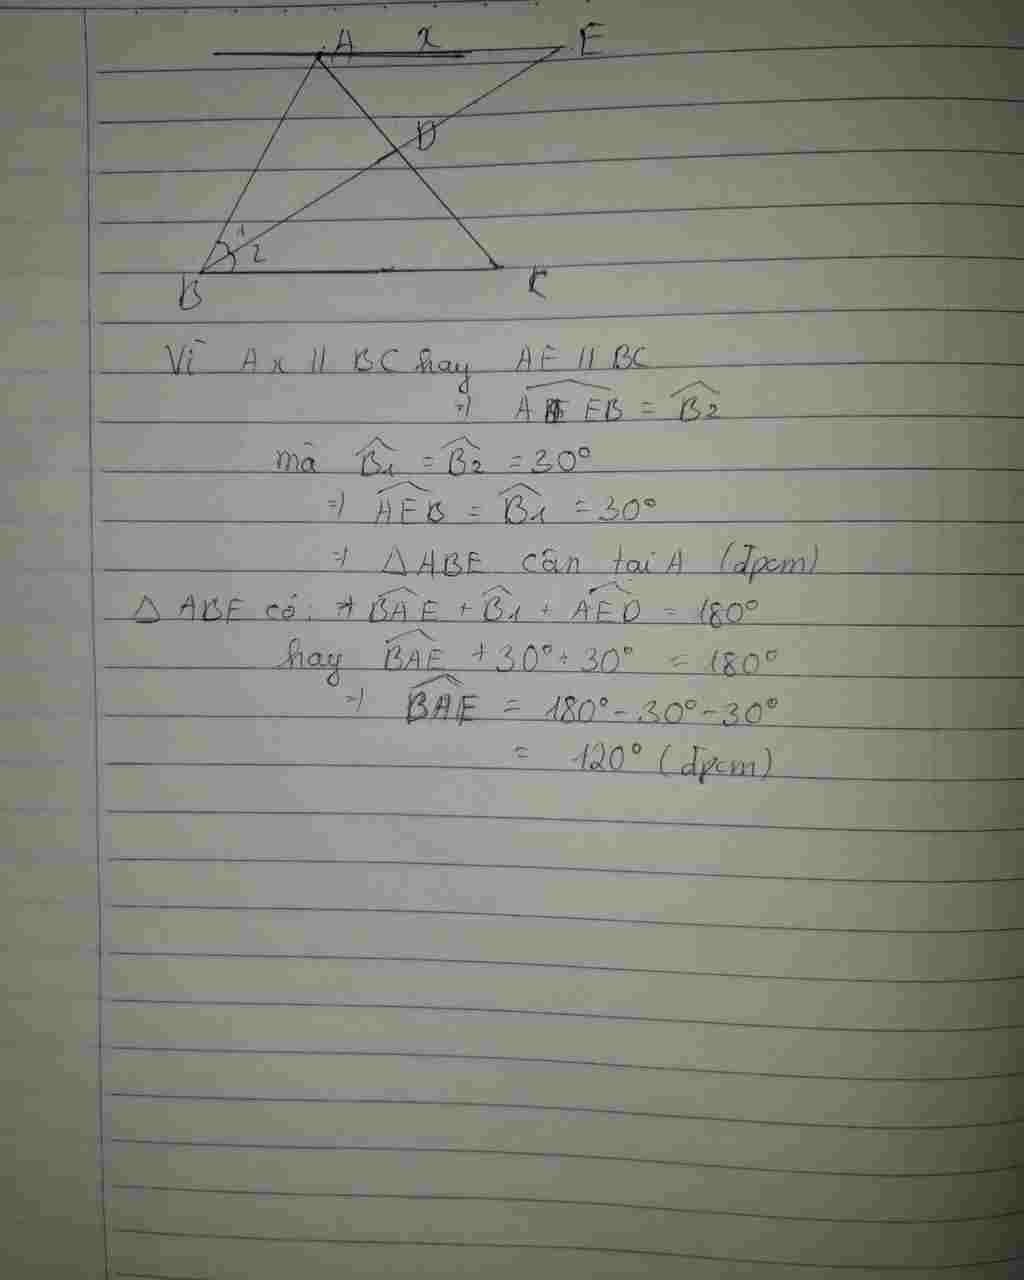 A x E
D
1
2
B C
Vì Ax // BC hay AE // BC
=> AEB = B2
mà B1 = B2 = 30°
=> AEB = B1 = 30°
=> △ABE cân tại A (đpcm)
△ ABE có: BAE + B1 + AED = 180°
hay BAE + 30° + 30° = 180°
=> BAE = 180° - 30° - 30°
= 120° (đpcm)